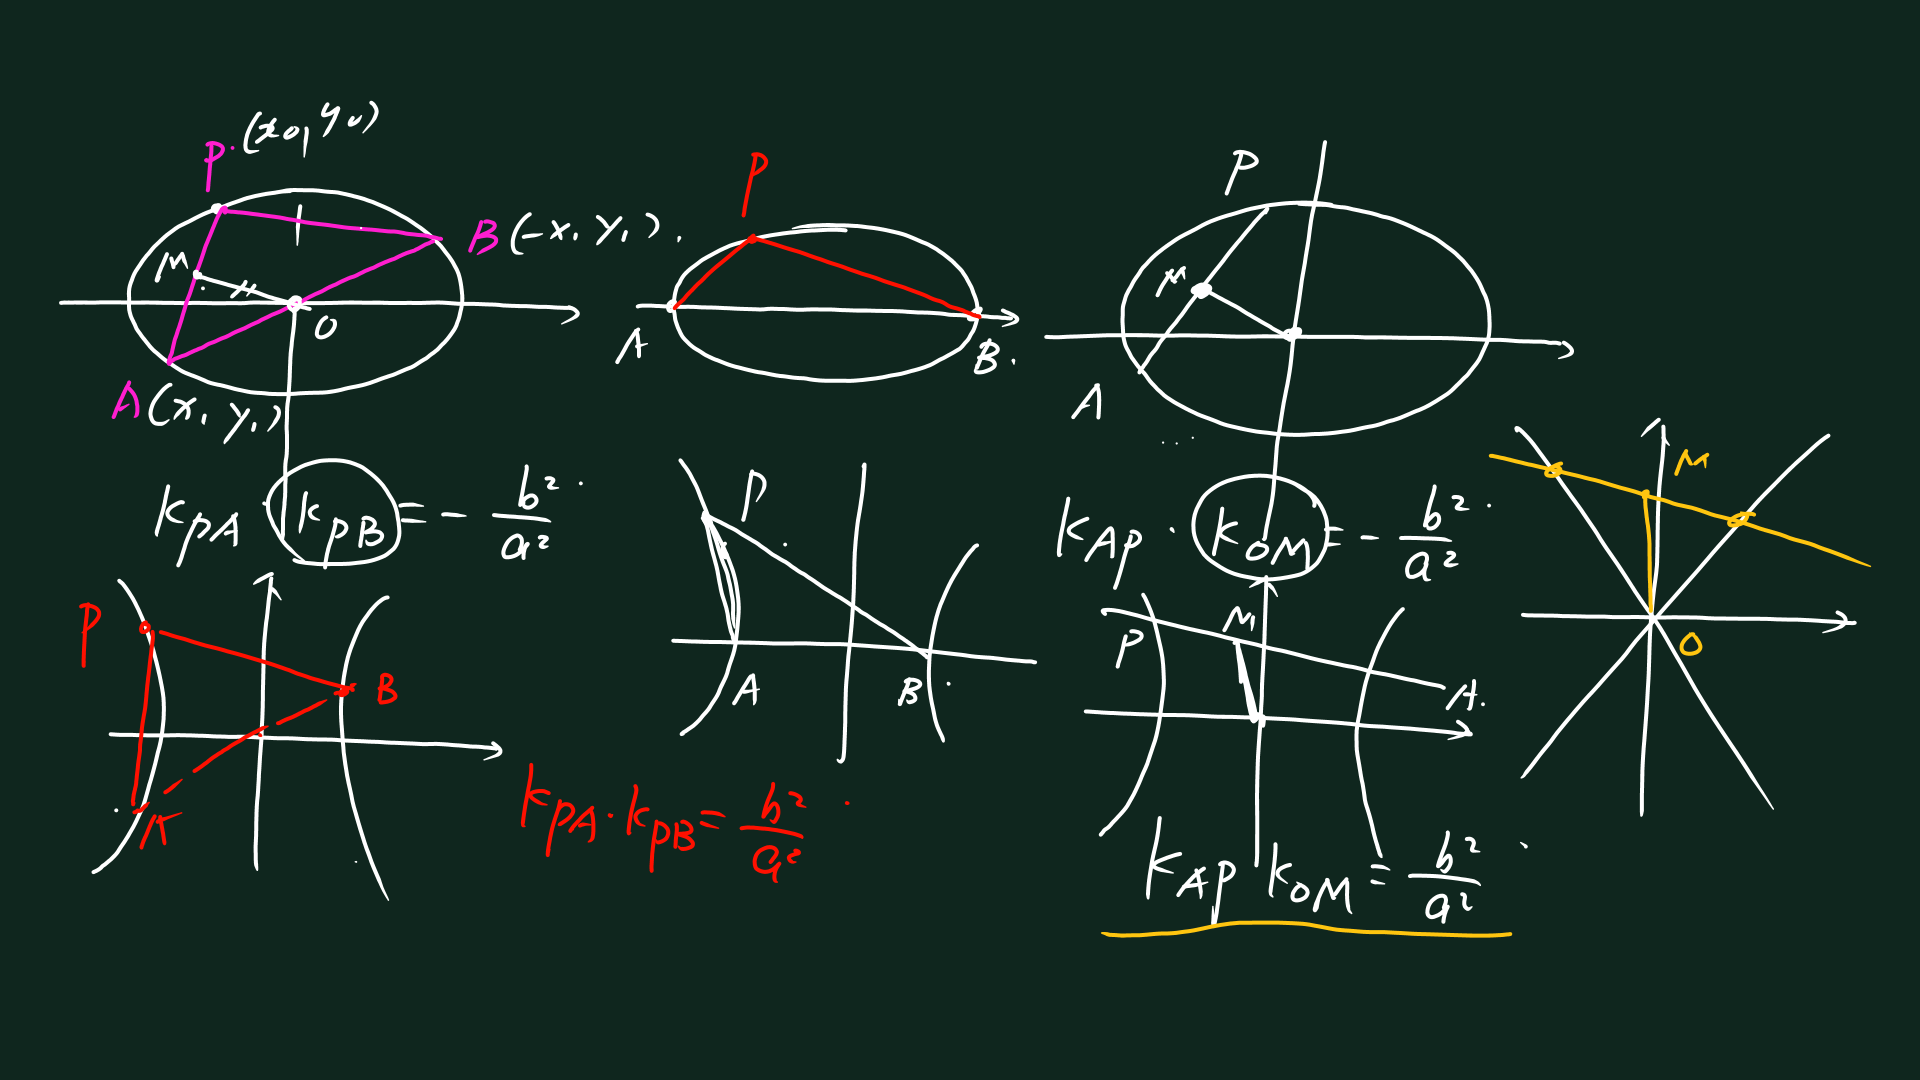 P. (x₀, y₀)
M
B (-x₁ y₁).
O
A (x₁ y₁)
k_PA · k_PB = - b²/a².
P
A
B.
P
M
A
k_AP · k_OM = - b²/a².
P
A
B.
P
B
A
k_PA · k_PB = b²/a².
M
P
A.
k_AP k_OM = b²/a².
M
O